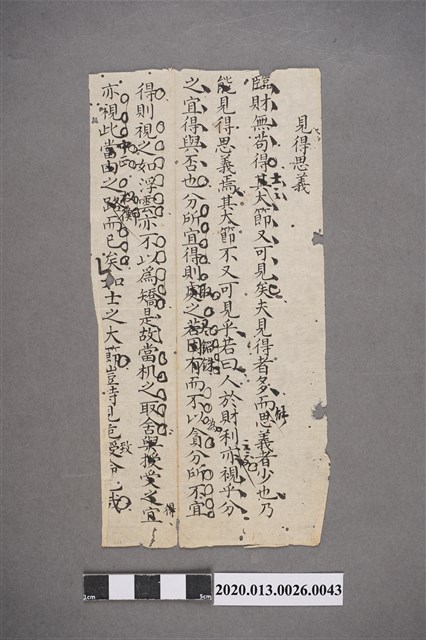 見得思義
臨財無苟得其大節又可見矣夫見得者多而思義者少也乃
能見得思義焉其大節不又可見乎若曰人於財利亦視乎分
之宜得與否也分所宜得則處之若固有而不以為貪分所不宜
得則視之如浮雲亦不以為矯是故當机之取舍與授受之宜
亦視此當由之路而已矣如士之大節豈特見危受命
致
得
1cm
5cm
2020.013.0026.0043